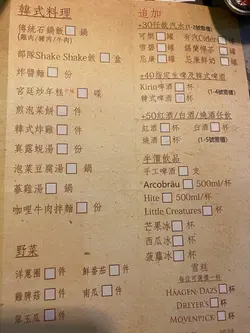 韓式料理
傳統石鍋飯□鍋
(雞肉/豬肉/牛肉)
部隊Shake Shake飯□盒
炸醬麵□份
宮廷炒年糕□碟
煎泡菜餅□件
韓式炸雞□件
真露蜆湯□份
泡菜豆腐湯□鍋
蔘雞湯□鍋
咖哩牛肉拌麵□份
野菜
洋蔥圈□件
鮮番茄□件
雞脾菇□件
南瓜□件
翠玉瓜□件
追加
+30任飲汽水(1-2號需選)
可樂□罐
有汽Cider□罐
雪碧□罐
錫蘭檸茶□罐
忌廉□罐
忌廉鮮奶□罐
+40指定生啤及韓式啤酒
Kirin啤酒□杯
韓式啤酒□杯
(1-4號需選)
+50紅酒/白酒/燒酒任飲
紅酒□杯
白酒□杯
燒酒□杯
(1-5號需選)
半價飲品
手工啤酒□支
Arcobräu□500ml/杯
Hite□500ml/杯
Little Creatures□杯
芒果冰□杯
西瓜冰□杯
菠蘿冰□杯
雪糕
每位可選一杯
HÄAGEN-DAZS□杯
DREYER'S□杯
MÖVENPICK□杯